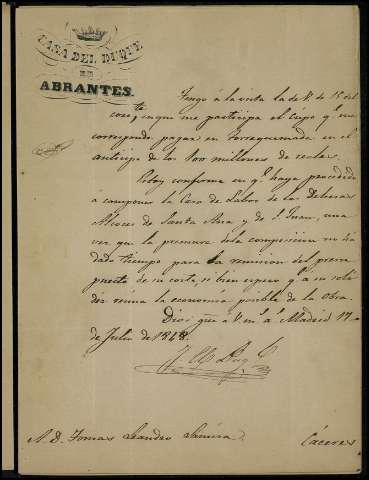 CASA DEL DUQUE
DE
ABRANTES.
Tengo á la vista la de V. de 15 del
cte, en que me participa el cupo q.e me
corresponde pagar en Torrequemada en el
anticipo de los 100 millones de reales.
Estoy conforme en q.e haya procedido
á componer la Casa de Labor de la Dehesa
Alcores de Santa Ana y de S. Juan, una
vez que la premura de la composicion no ha
dado tiempo para la remision del presu
puesto de su coste, si bien espero q.e á su soli
déz reuna la economía posible de la obra.
Dios gue á V. m.s a.s Madrid 17
de Julio de 1848.
S. D. Tomas Leandro
Cáceres